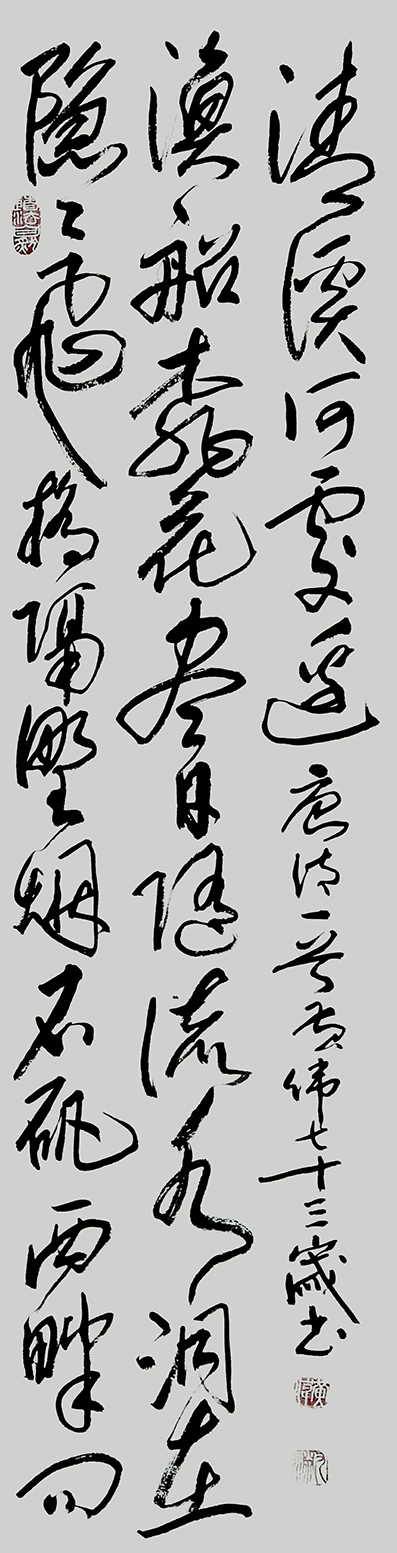 隐隐飞橋隔野烟石矶西畔问
漁船桃花尽日随流水洞在
清溪何處边
唐诗一首黄伟七十三歲书